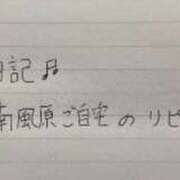 日記♬
南風原ご自宅のリピ